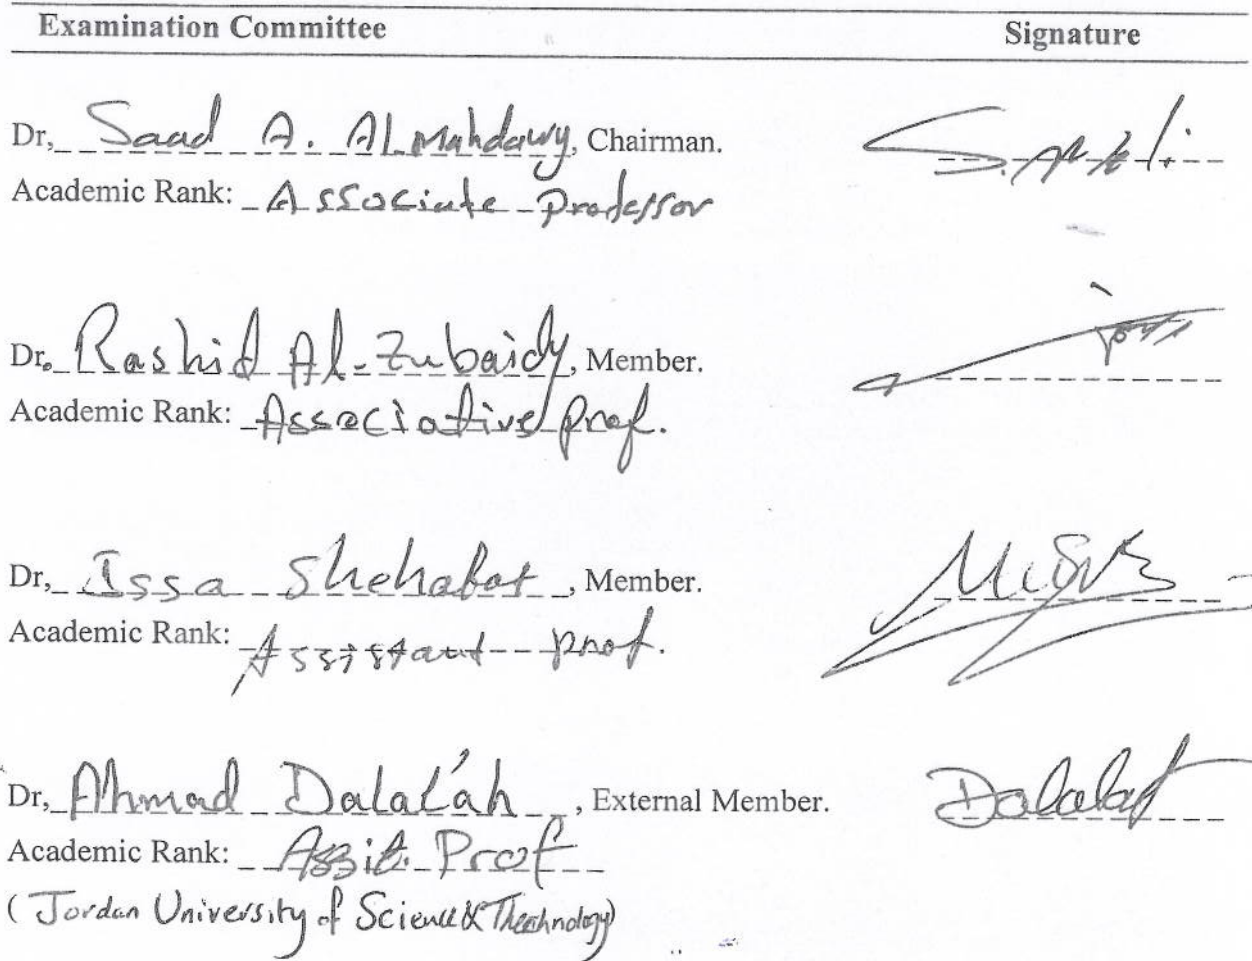 Examination Committee Signature
Dr, Saad A. AL Mahdawy, Chairman.
Academic Rank: Associate Professor
Dr. Rashid Al-Zubaidy, Member.
Academic Rank: Associative prof.
Dr, Issa Shehabat, Member.
Academic Rank: Assistant prof.
Dr, Ahmad Dalalah, External Member. Dalalah
Academic Rank: Assit. Prof
(Jordan University of Science & Theahnology)